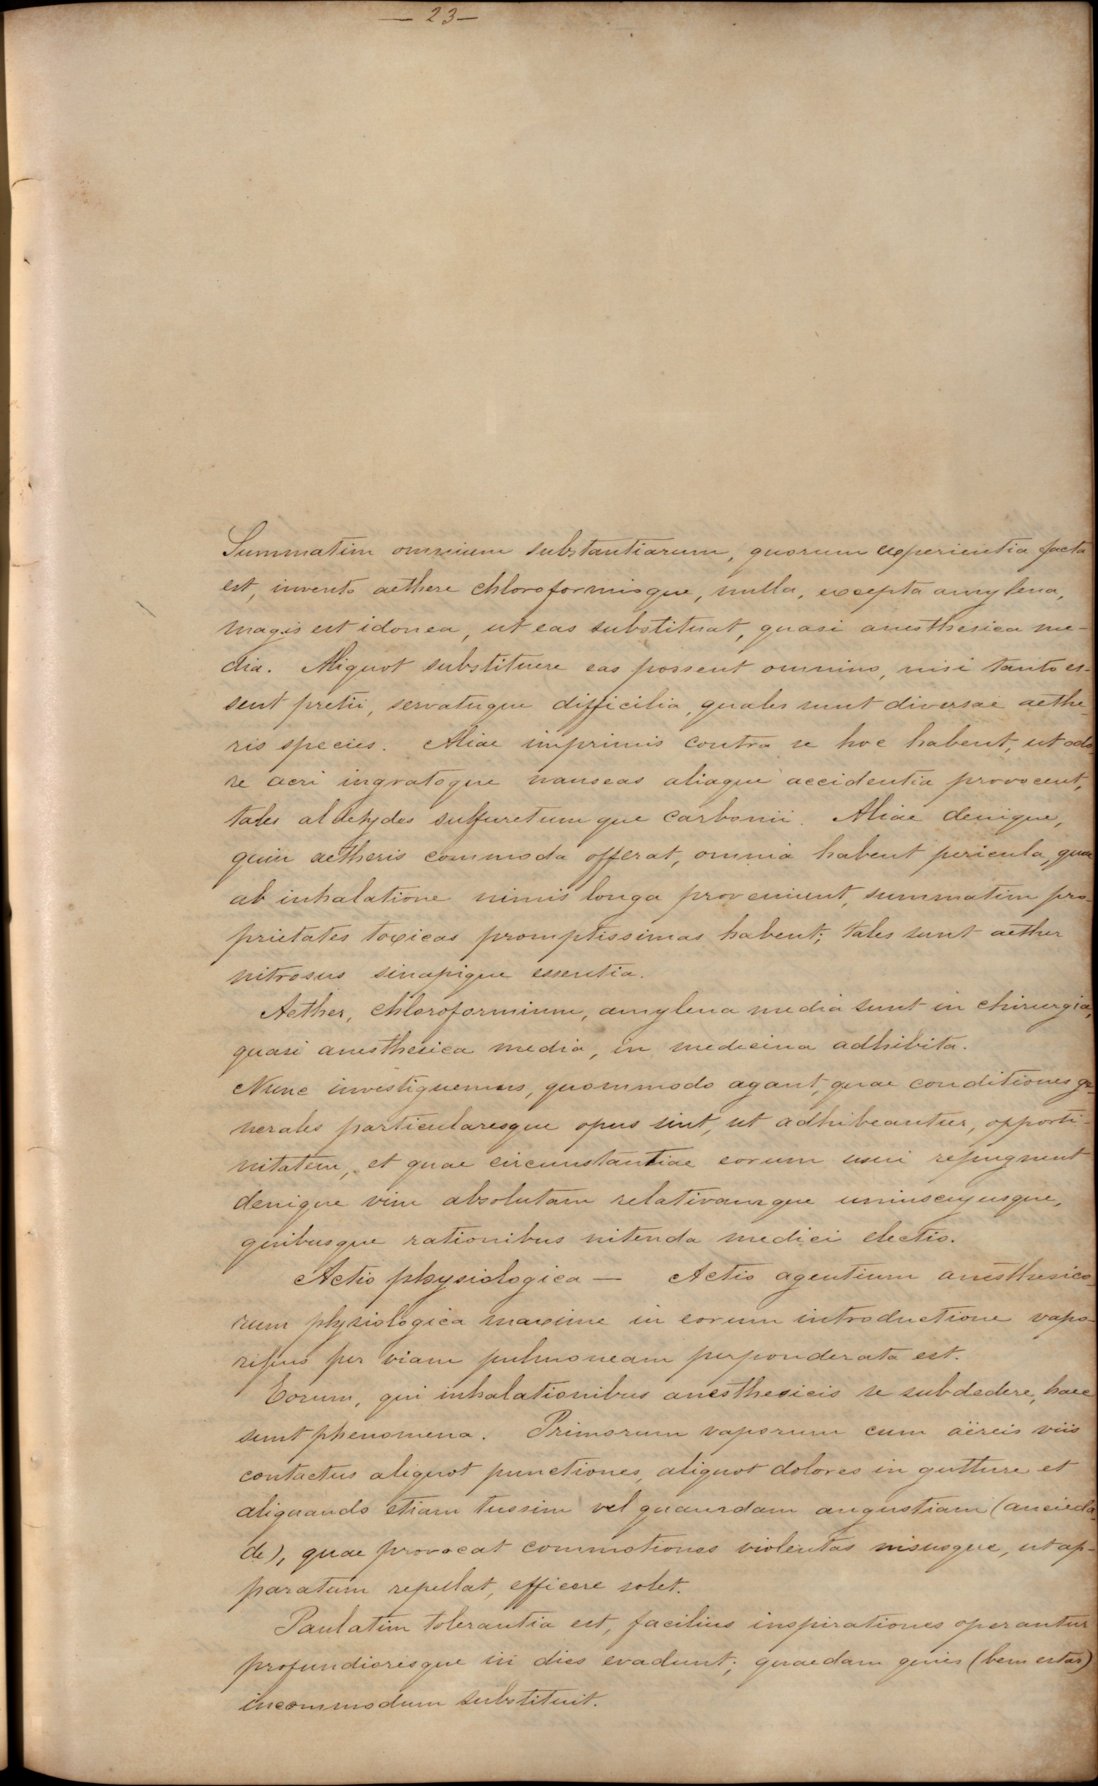 — 23 —
Summatim omnium substantiarum, quorum experientia facta
est, invento aethere chloroformioque, nulla, excepta amylena,
magis est idonea, ut eas substituat, quasi anesthesica me-
dia. Aliquot substituere eas possent omnino, nisi tanto es-
sent pretii, servatuque difficilia, quales sunt diversae aethe-
ris species. Aliae imprimis contra se hoc habent, ut odo-
re acri ingratoque nauseas aliaque accidentia provocent,
tales aldehydes sulfuretumque carbonii. Aliae denique,
quin aetheris commoda offerat, omnia habent pericula, quae
ab inhalatione nimis longa proveniunt, summatim pro-
prietates toxicas promptissimas habent; tales sunt aether
nitrosus sinapique essentia.
Aether, chloroformium, amylena media sunt in chirurgia,
quasi anesthesica media, in medicina adhibita.
Nunc investiguemus, quommodo agant, quae conditiones ge-
nerales particularesque opus sint, ut adhibeantur, opporti-
nitatem, et quae circumstantiae eorum usui repugnent
denique vim absolutam relativamque uniuscujusque,
quibusque rationibus nitenda medici electio.
Actio physiologica — Actio agentium anesthesico-
rum physiologica maxime in eorum introductione vapo-
ribus per viam pulmoneam perponderata est.
Eorum, qui inhalationibus anesthesicis se subdedere, haec
sunt phenomena. Primorum vaporum cum aëreis viis
contactus aliquot punctiones, aliquot dolores in gutture et
aliquando etiam tussim vel quamdam angustiam (ancieda-
de), quae provocat commotiones violentas nisusque, ut ap-
paratum repellat, efficere solet.
Paulatim tolerantia est, facilius inspirationes operantur
profundioresque in dies evadunt; quaedam quies (bem estar)
incommodum substituit.